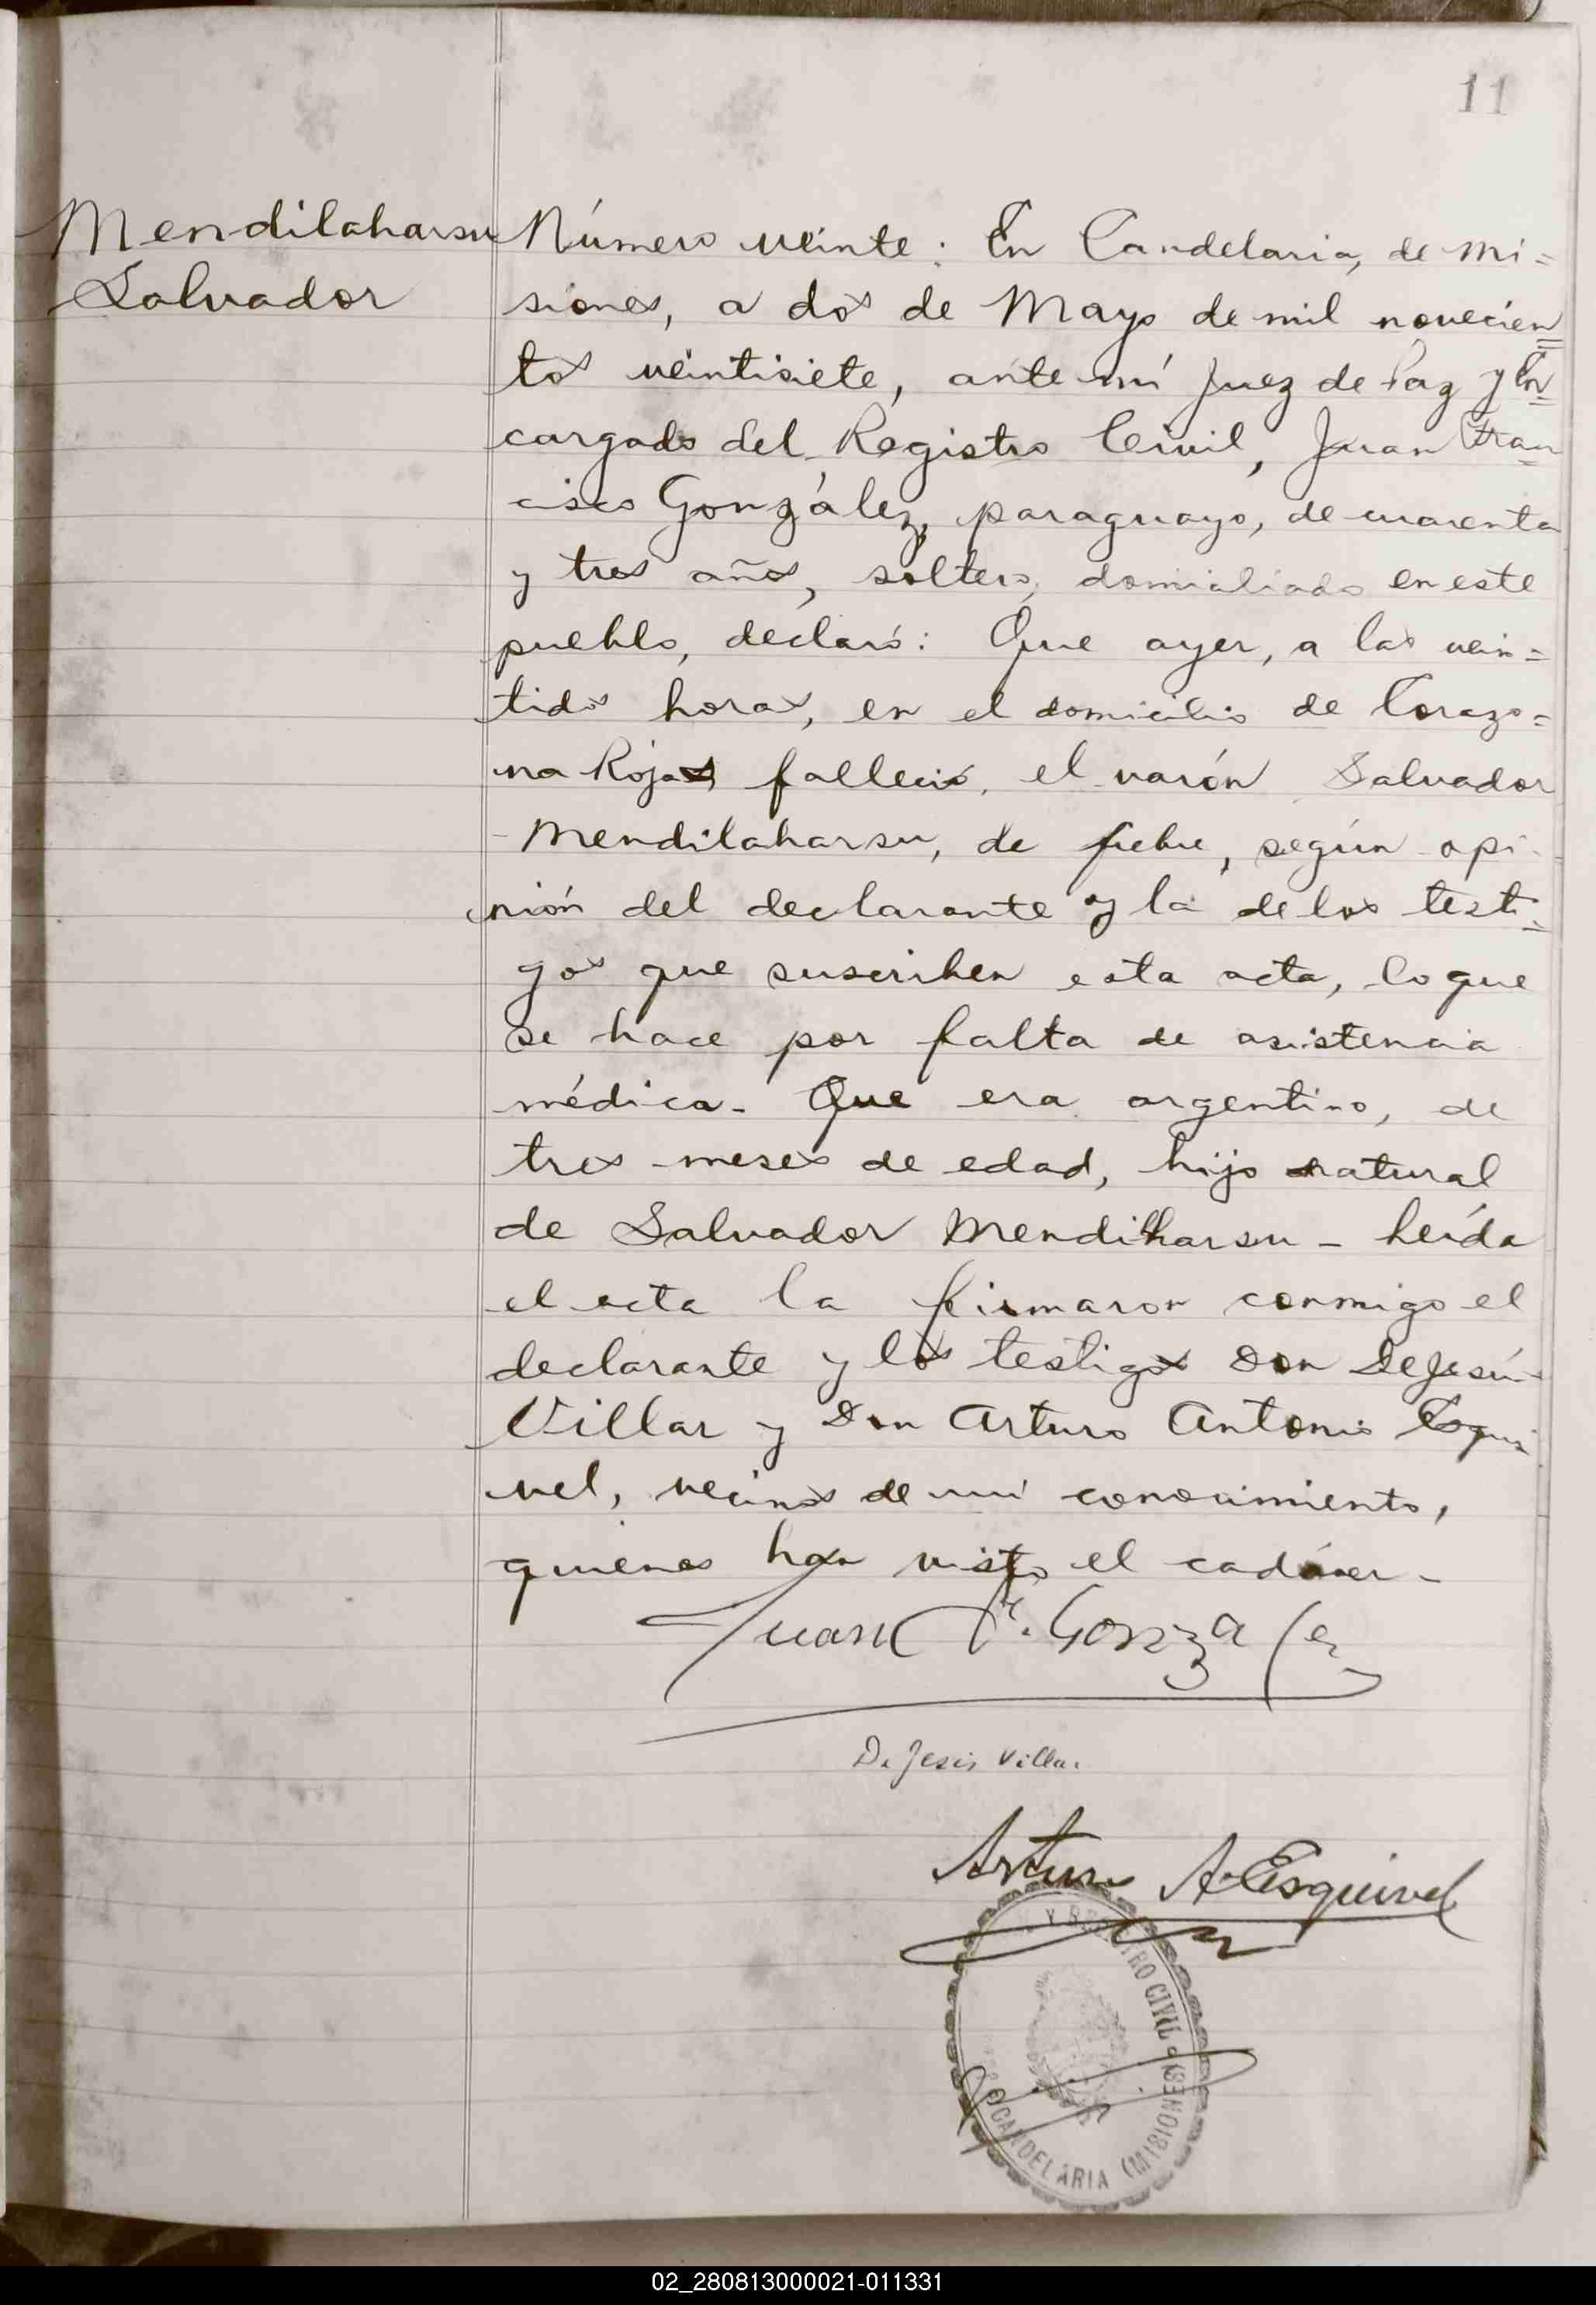 11
Mendilaharsu
Salvador
Número veinte: En Candelaria, de Mi=
siones, a dos de Mayo de mil novecien=
tos veintisiete, ante mí Juez de Paz y En=
cargado del Registro Civil, Juan Fran=
cisco González, paraguayo, de cuarenta
y tres años, soltero, domiciliado en este
pueblo, declaró: Que ayer, a las vein=
tidos horas, en el domicilio de Corazo=
na Rojas falleció, el varón Salvador
Mendilaharsu, de fiebre, según opi-
nión del declarante y la de los testi=
gos que suscriben esta acta, lo que
se hace por falta de asistencia
médica- Que era argentino, de
tres meses de edad, hijo natural
de Salvador Mendilharsu - Leída
el acta la firmaron conmigo el
declarante y los testigos Don DeJesús
Villar y Don Arturo Antonio Esqui
vel, vecinos de mi conocimiento,
quienes han visto el cadáver-
Juan F. González
D. Jesús Villar
Arturo A. Esquivel
Y REGISTRO CIVIL
CANDELARIA (MISIONES)
02_280813000021-011331